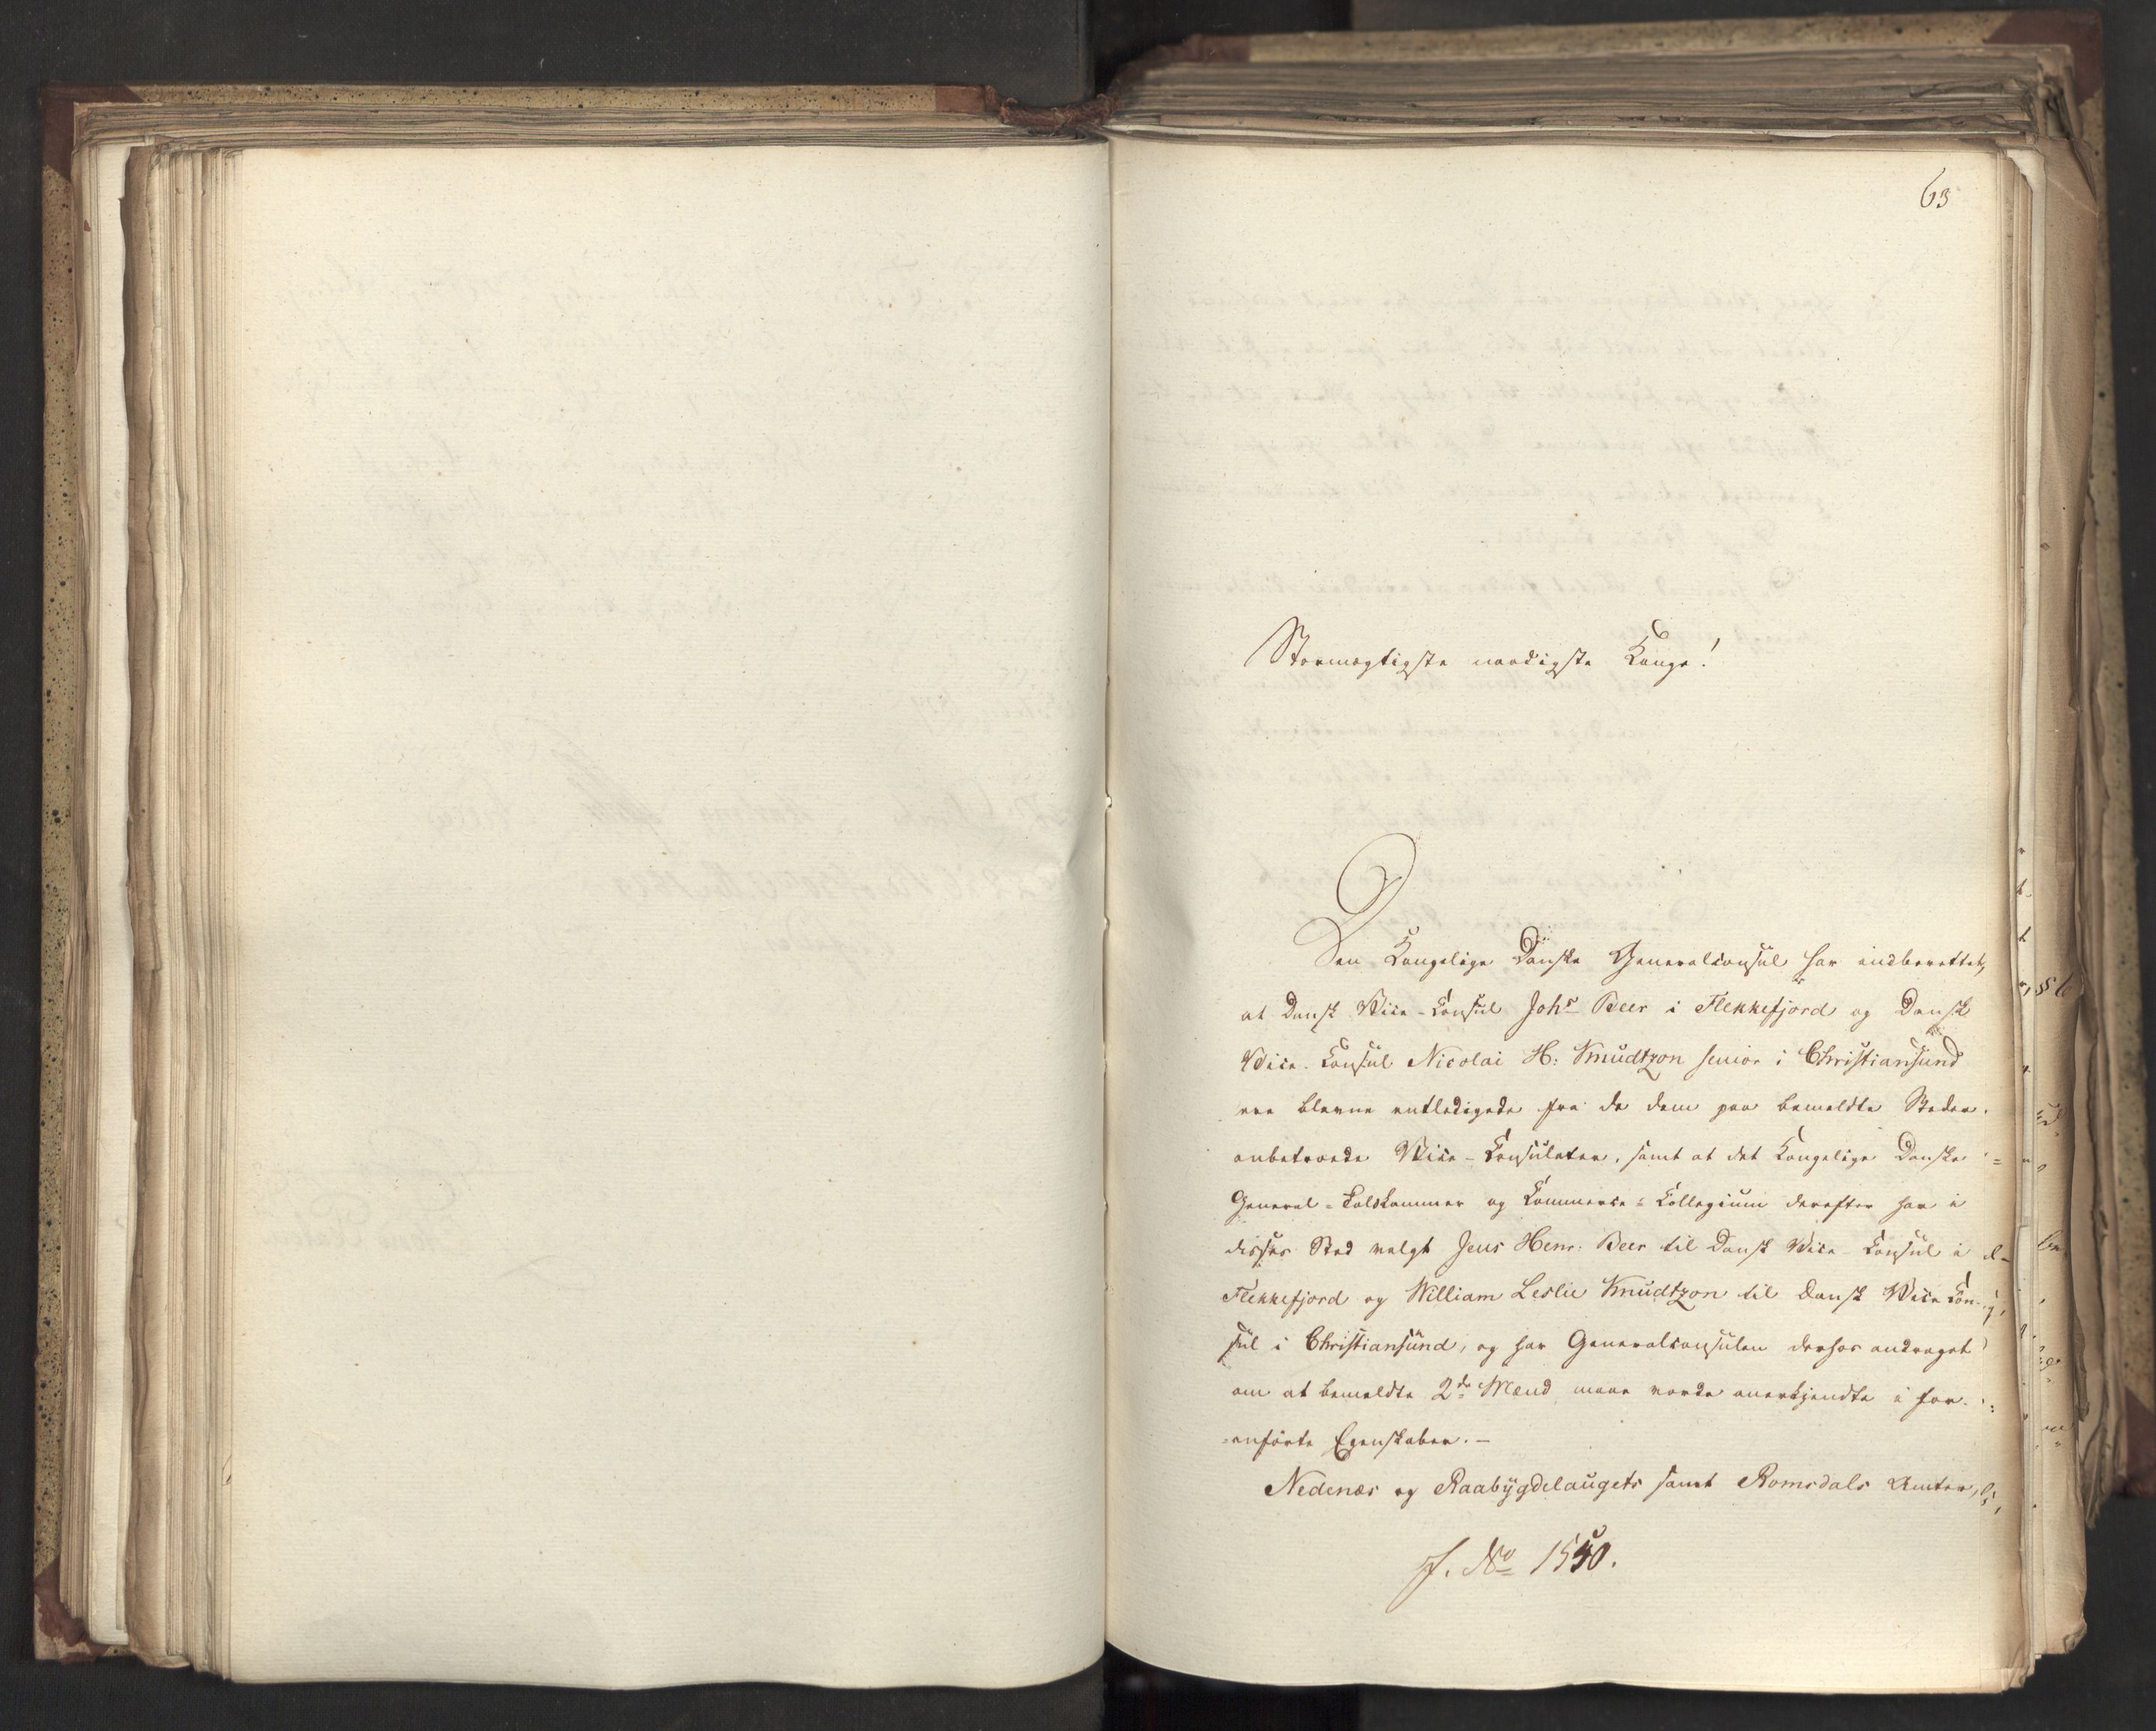 63
Stormægtigste naadigste Konge!
Den Kongelige Danske Generalconsul har indberettet,
at Dansk Vice-Consul Johs Beer i Flekkefjord og Dansk
Vice-Consul Nicolai H: Knudtzon senior i Christiansund
ere blevne entledigede fra de dem paa bemeldte Steder
anbetroede Vice-Consulater, samt at det Kongelige Danske
General-Toldkammer og Commerce-Collegium derefter har i
disses Sted valgt Jens Henr: Beer til Dansk Vice-Consul i
Flekkefjord og William Leslie Knudtzon til Dansk Vice Con-
sul i Christiansund, og har Generalconsulen derhos andraget
om at bemeldte 2de Mænd maae vorde anerkjendte i for-
anførte Egenskaber.-
Nedenæs og Raabygdelaugets samt Romsdals Amter,
J. No 1550.